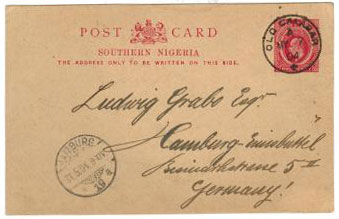 POST CARD
SOUTHERN NIGERIA
THE ADDRESS ONLY TO BE WRITTEN ON THIS SIDE.
OLD CALABAR
Ludwig Grabo Esqr.
Hamburg-Eimsbüttel
5 II
Germany!
HAMBURG